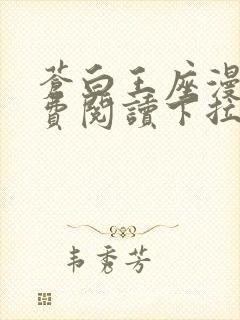 蒼白王座漫
費閱讀下拉
韦秀芳